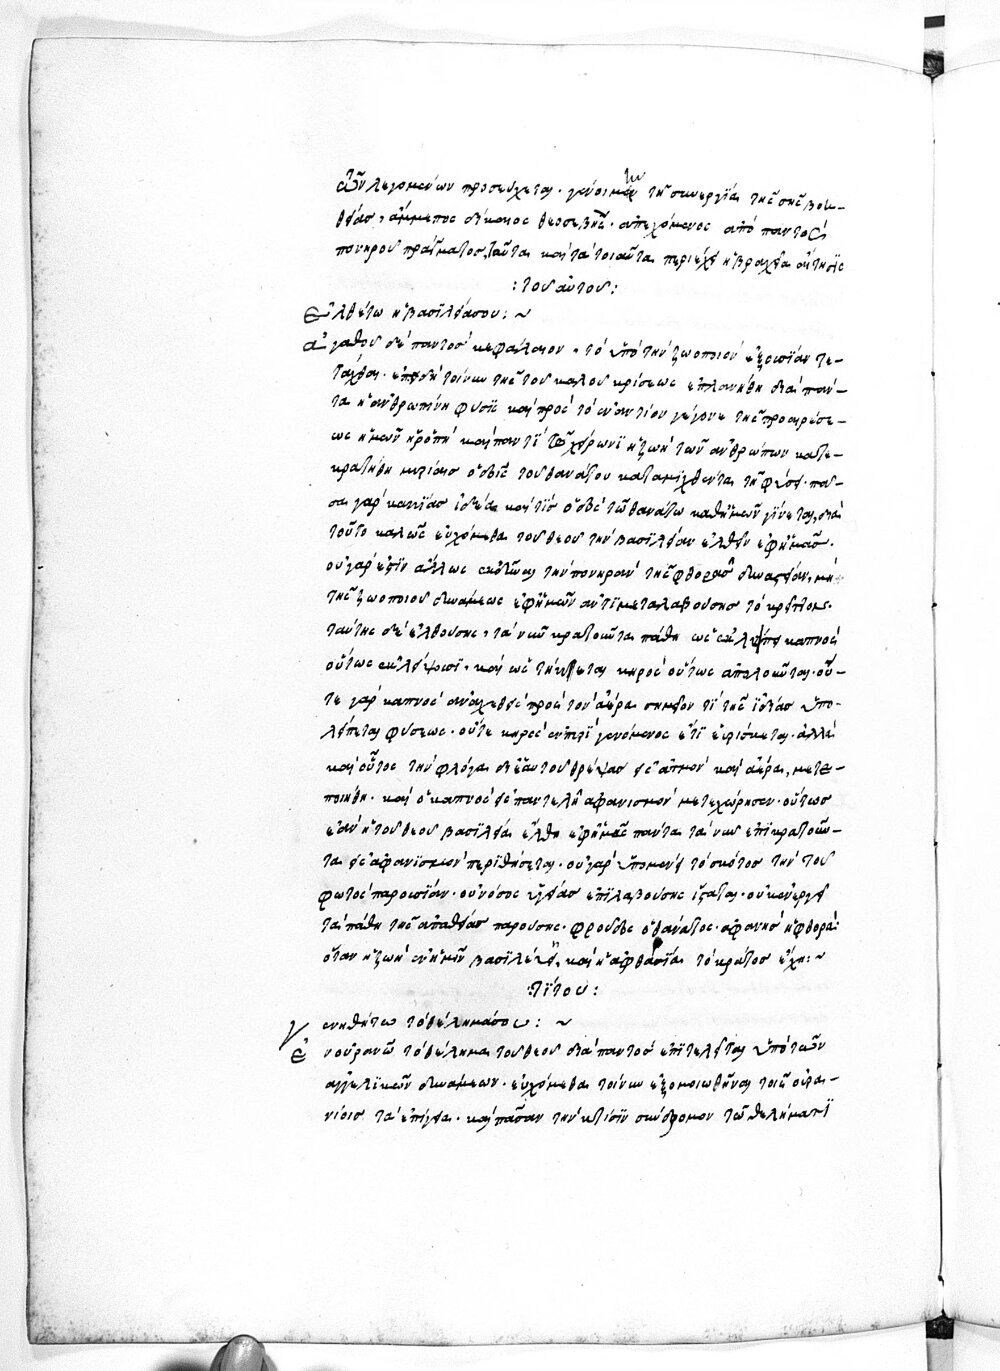 τῶν λεγομένων προσεύχεται. γενοίμην τῇ συνεργίᾳ τῆς σῆς βοη-
θείας, ἄμεμπτος δίκαιος θεοσεβής. ἀπεχόμενος ἀπὸ παντὸς
πονηροῦ πράγματος, ταῦτα καὶ τὰ τοιαῦτα περιέχει ἡ βραχεῖα αἴτησις
: τοῦ αὐτοῦ :
Ἐλθέτω ἡ βασιλεία σου : ~
ἀγαθοῦ δὲ παντὸς κεφάλαιον, τὸ ὑπὸ τὴν ζωοποιὸν ἐξουσίαν τε-
τάχθαι. ἐπειδὴ τοίνυν τῆς τοῦ καλοῦ κρίσεως ἐπλανήθη διαπάν-
τα ἡ ἀνθρωπίνη φύσις καὶ πρὸς τὸ ἐναντίον γέγονε τῆς προαιρέσε-
ως ἡμῶν ἡ ῥοπή καὶ παντὶ τῷ χείρωνι ἡ ζωὴ τῶν ἀνθρώπων κατε-
κρατήθη μυρίαις ὁδοῖς τοῦ θανάτου καταμιχθέντα τῇ φύσει. πᾶ-
σα γὰρ κακίας ἰδέα καί τις ὁδὸς τῷ θανάτῳ καθ' ἡμῶν γίνεται, διὰ
τοῦτο καλῶς εὐχόμεθα τοῦ θεοῦ τὴν βασιλείαν ἐλθεῖν ἐφ' ἡμᾶς.
οὐ γάρ ἐστιν ἄλλως ἐκδῦναι τὴν πονηρὰν τῆς φθορᾶς δυναστείαν, μὴ
τῆς ζωοποιοῦ δυνάμεως ἐφ' ἡμῶν ἀντιμεταλαβούσης τὸ κράτος.
ταύτης δὲ ἐλθούσης, τὰ νῦν κρατοῦντα πάθη ὡς ἐκλείπει καπνὸς
οὕτως ἐκλείψωσι. καὶ ὡς τήκεται κηρὸς οὕτως ἀπολοῦνται. οὔ-
τε γὰρ καπνὸς ἀναχεθεὶς πρὸς τὸν ἀέρα σημεῖόν τι τῆς ἰδίας ὑπο-
λείπεται φύσεως. οὔτε κηρὸς ἐν πυρὶ γενόμενος ἔτι εὑρίσκεται. ἀλλὰ
καὶ οὗτος τὴν φλόγα δι' ἑαυτοῦ θρέψας εἰς ἀτμὸν καὶ ἀέρα, μετε-
ποιήθη. καὶ ὁ καπνὸς εἰς παντελῆ ἀφανισμὸν μετεχώρησεν. οὕτως
ἐὰν ἡ τοῦ θεοῦ βασιλεία ἔλθῃ ἐφ' ἡμᾶς πάντα τὰ νῦν ἐπικρατοῦν-
τα εἰς ἀφανισμὸν περιθήσεται. οὐ γὰρ ὑπομένει τὸ σκότος τὴν τοῦ
φωτὸς παρουσίαν. οὐ νόσος ὑγείας ἐπιλαβούσης ἵσταται. οὐκ ἐνεργεῖ
τὰ πάθη τῆς ἀπαθείας παρούσης. φροῦδος ὁ θάνατος. ἀφανὴς ἡ φθορὰ
ὅταν ἡ ζωὴ ἐν ἡμῖν βασιλεύῃ, καὶ ἡ ἀφθαρσία τὸ κράτος ἔχῃ : ~
: Τίτου :
Γενηθήτω τὸ θέλημά σου : ~
Ἐν οὐρανῷ τὸ θέλημα τοῦ θεοῦ διὰ παντὸς ἐπιτελεῖται ὑπὸ τῶν
ἀγγελικῶν δυνάμεων. εὐχόμεθα τοίνυν ἐξομοιωθῆναι τοῖς οὐρα-
νίοις τὰ ἐπίγεια. καὶ πᾶσαν τὴν κτίσιν σύνδρομον τῷ θελήματι